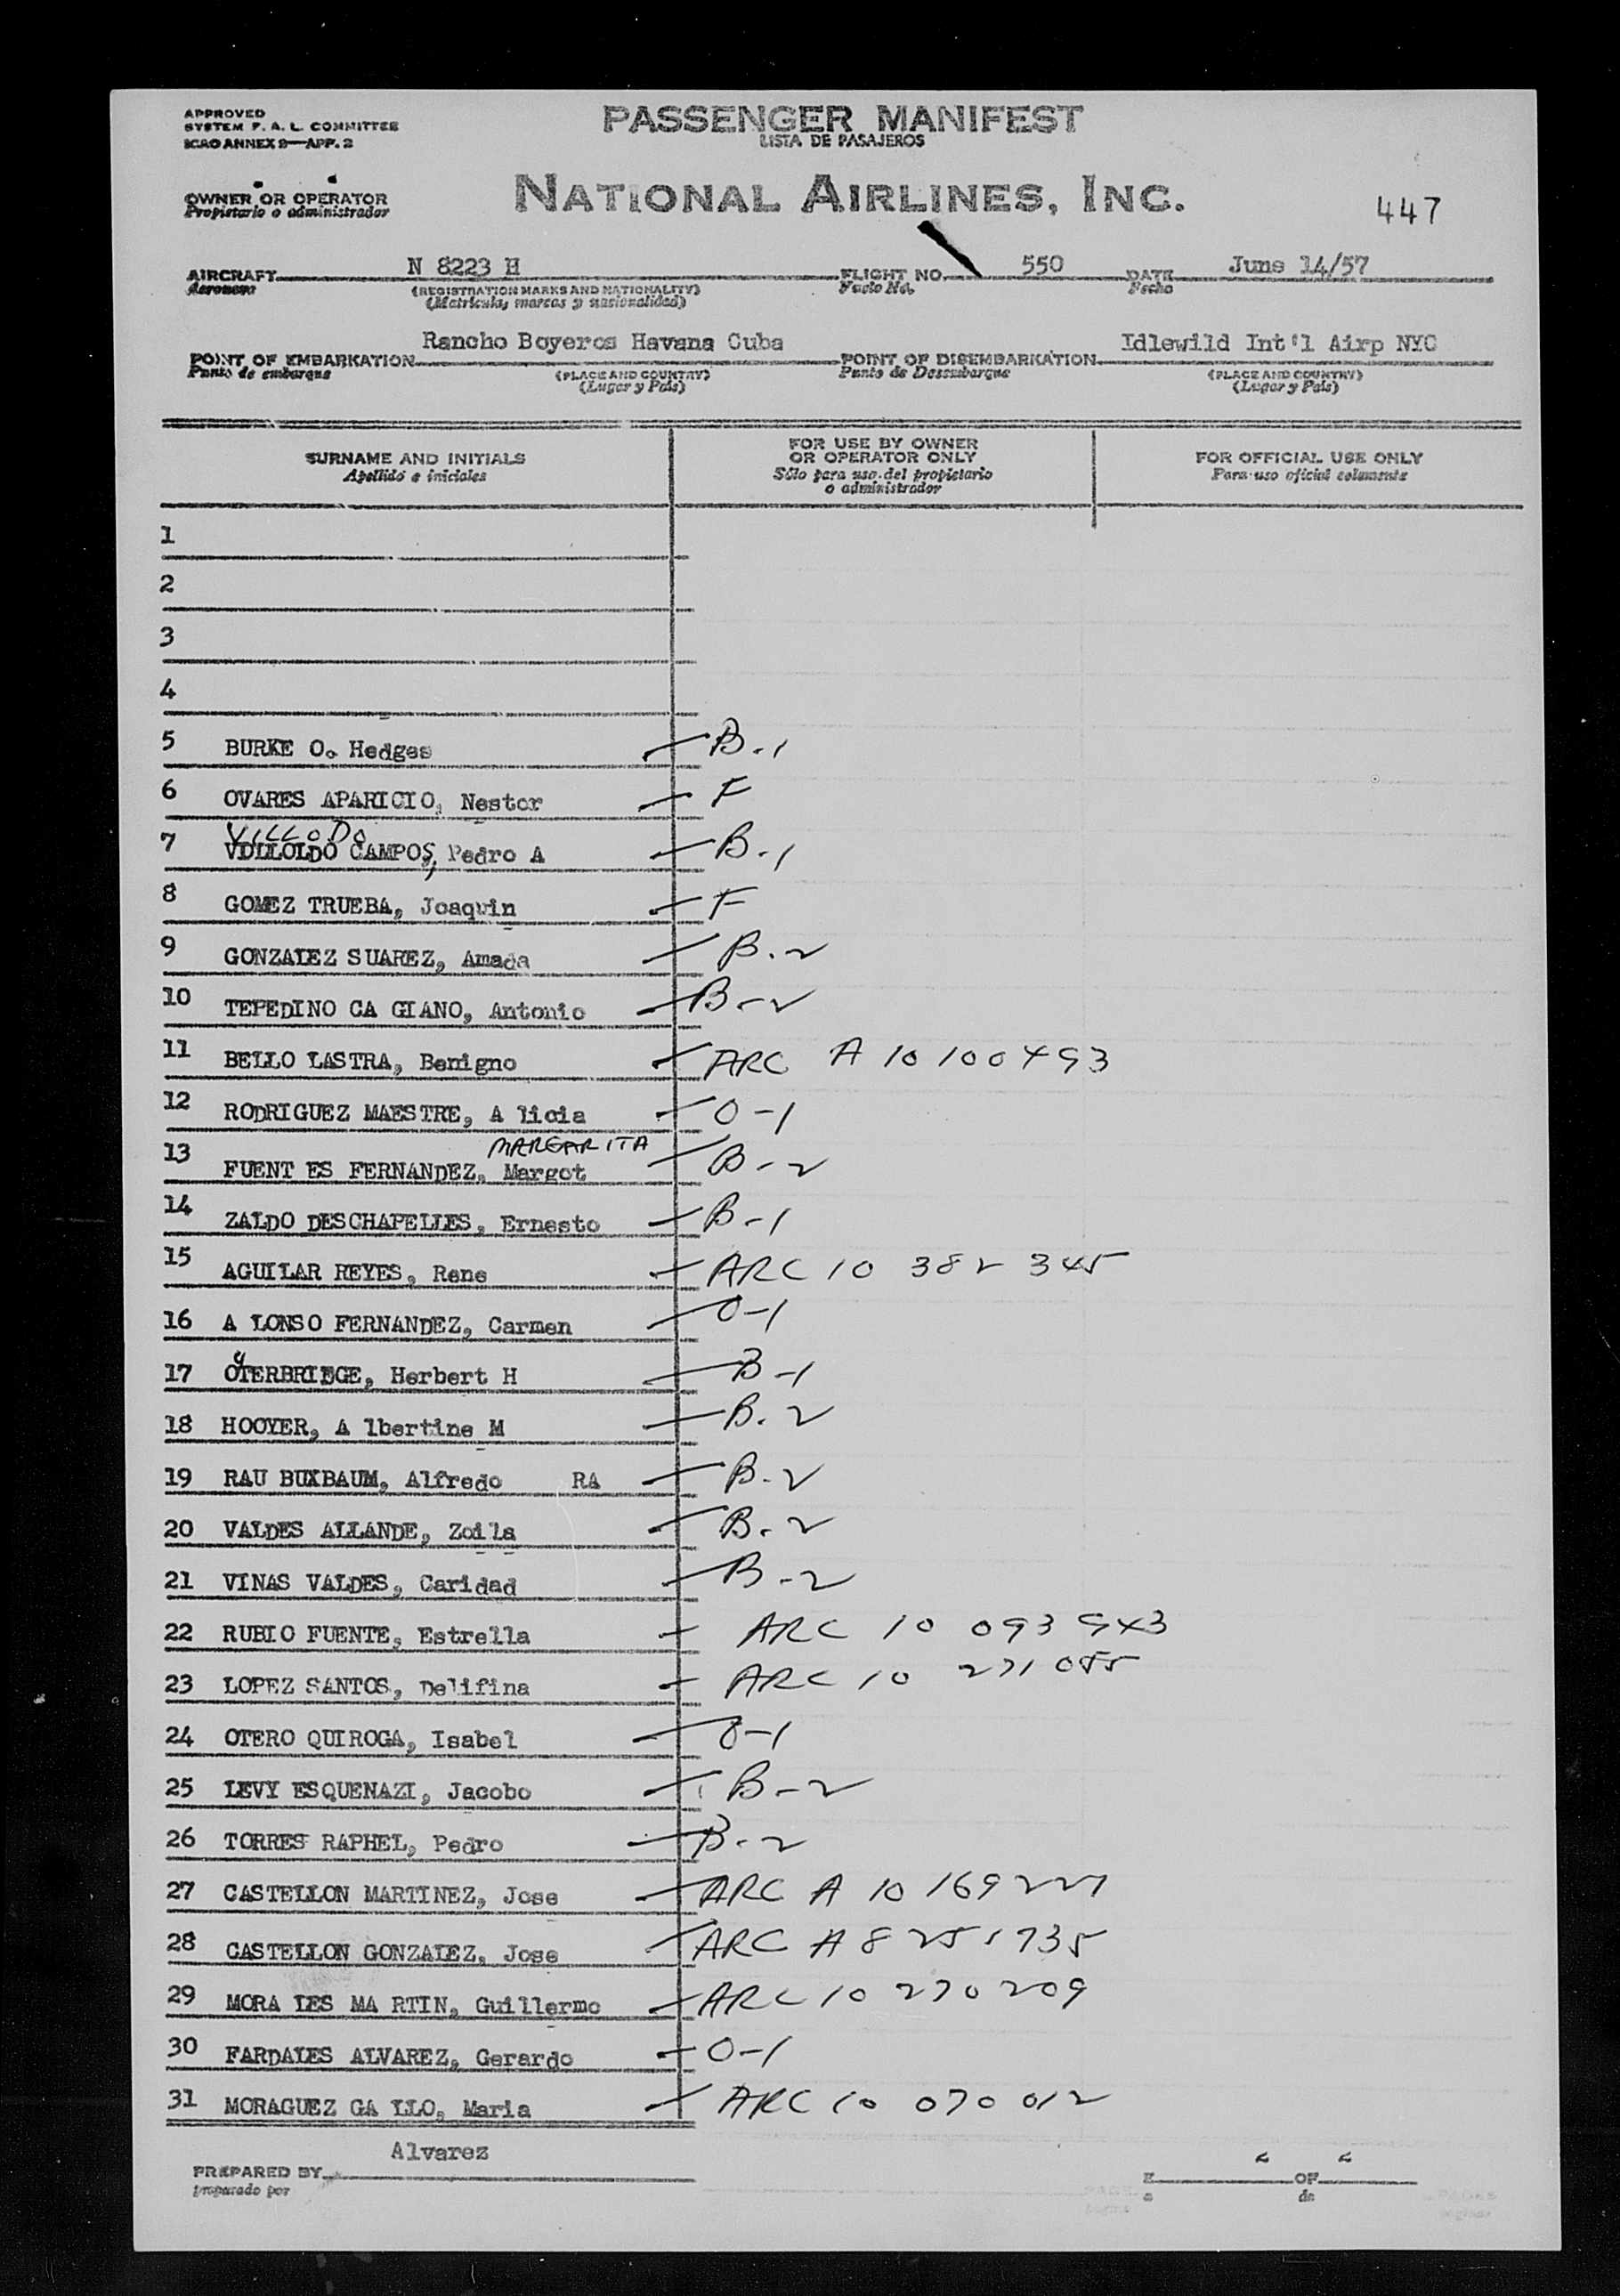 APPROVED
SYSTEM F. A. L. COMMITTEE
ICAO ANNEX 9—APP. 2
PASSENGER MANIFEST
LISTA DE PASAJEROS
OWNER OR OPERATOR
Propietario o administrador
NATIONAL AIRLINES, INC.
447
AIRCRAFT N 8223 H FLIGHT NO. 550 DATE June 14/57
Aeronave (REGISTRATION MARKS AND NATIONALITY) Vuelo No. Fecha
(Matricula, marcas y nacionalidad)
POINT OF EMBARKATION Rancho Boyeros Havana Cuba POINT OF DISEMBARKATION Idlewild Int'l Airp NYC
Punto de embarque (PLACE AND COUNTRY) Punto de Desembarque (PLACE AND COUNTRY)
(Lugar y País) (Lugar y País)
SURNAME AND INITIALS
Apellido e iniciales
FOR USE BY OWNER
OR OPERATOR ONLY
Sólo para uso del propietario
o administrador
FOR OFFICIAL USE ONLY
Para uso oficial solamente
1
2
3
4
5 BURKE O. Hedges B.1
6 OVARES APARICIO, Nestor F
VILLODO
7 CAMPOS, Pedro A B.1
8 GOMEZ TRUEBA, Joaquin F
9 GONZALEZ SUAREZ, Amada B.2
10 TEPEDINO CA GIANO, Antonio B-2
11 BELLO LASTRA, Benigno ARC A 10 100 493
12 RODRIGUEZ MAESTRE, A licia O-1
MARGARITA
13 FUENT ES FERNANDEZ, Margot B-2
14 ZALDO DESCHAPELLES, Ernesto B-1
15 AGUILAR REYES, Rene ARC 10 382 345
16 A LONSO FERNANDEZ, Carmen O-1
17 OTERBRIDGE, Herbert H B-1
18 HOOYER, A lbertine M B.2
19 RAU BUXBAUM, Alfredo RA B-2
20 VALDES ALLANDE, Zoila B.2
21 VINAS VALDES, Caridad B-2
22 RUBIO FUENTE, Estrella ARC 10 093 943
23 LOPEZ SANTOS, Delifina ARC 10 271 055
24 OTERO QUIROGA, Isabel O-1
25 LEVY ESQUENAZI, Jacobo B-2
26 TORRES RAPHEL, Pedro B-2
27 CASTELLON MARTINEZ, Jose ARC A 10 169 227
28 CASTELLON GONZALEZ, Jose ARC A 8 251 735
29 MORA LES MA RTIN, Guillermo ARC 10 270 209
30 FARDALES ALVAREZ, Gerardo O-1
31 MORAGUEZ GA LLO, Maria ARC 10 070 012
PREPARED BY Alvarez
preparado por
OF
de